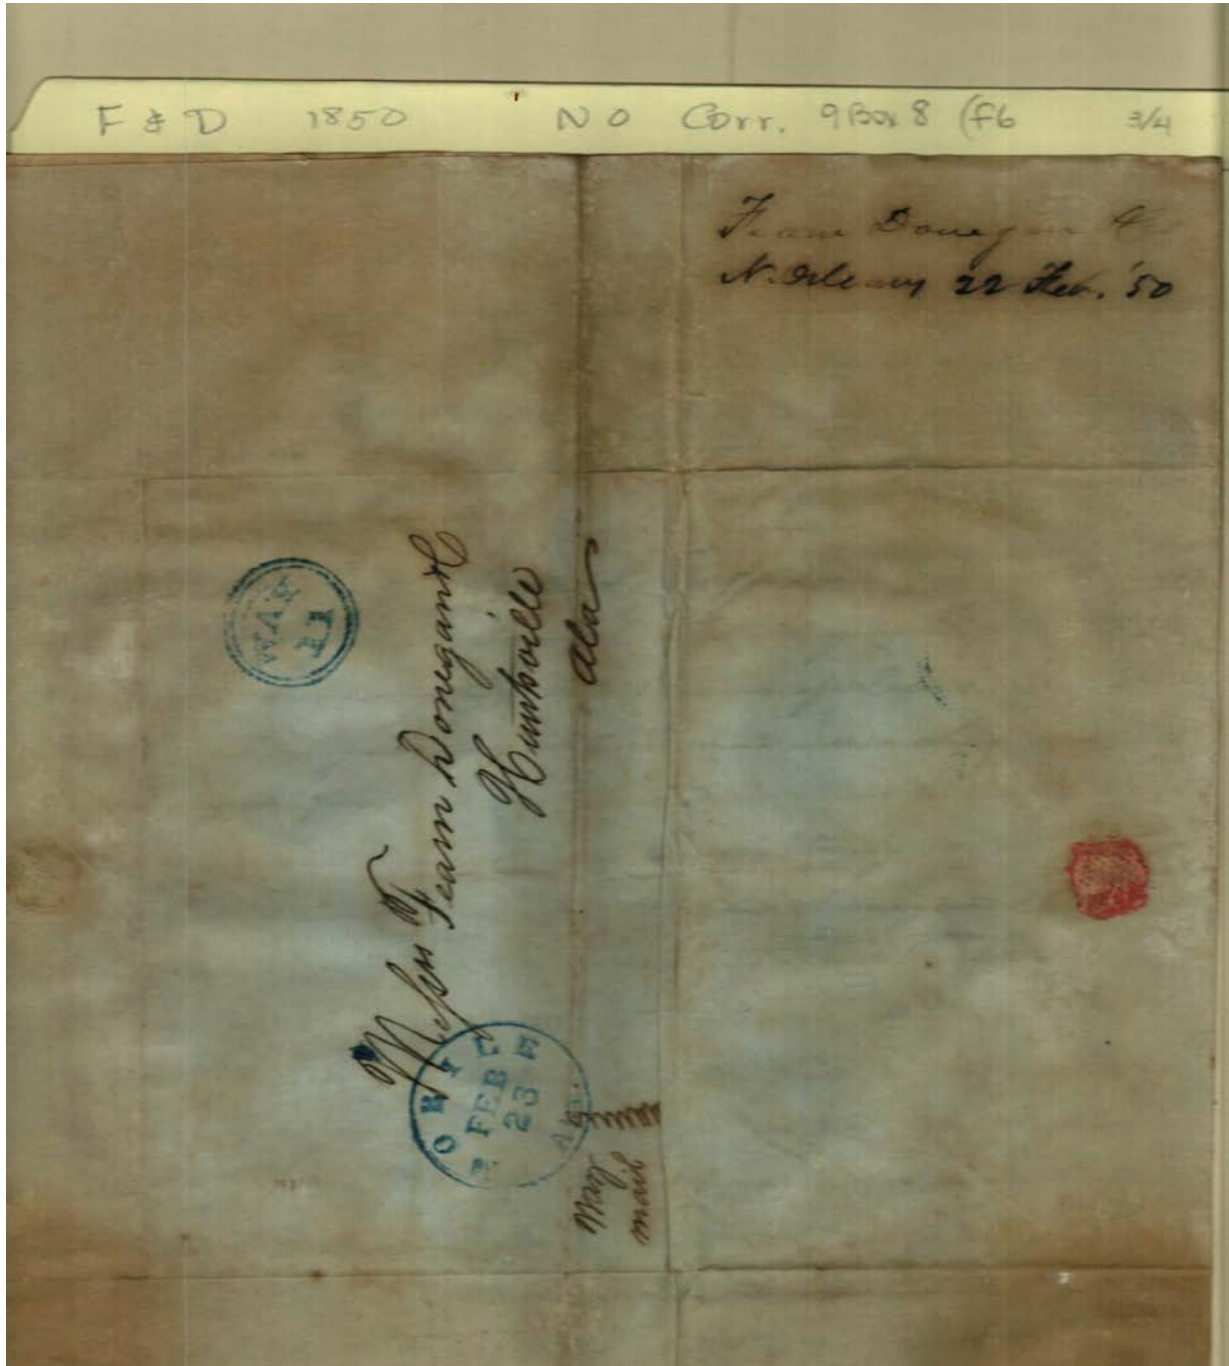 F & D 1850 NO Corr. 9 Box 8 (f6 3/4
Fearn Donegan &
N. Orleans 22 Feb. '50
WAY
11
Messrs Fearn Donegan &
Huntsville
Ala
MOBILE
FEB
23
Ala.
Way
mail